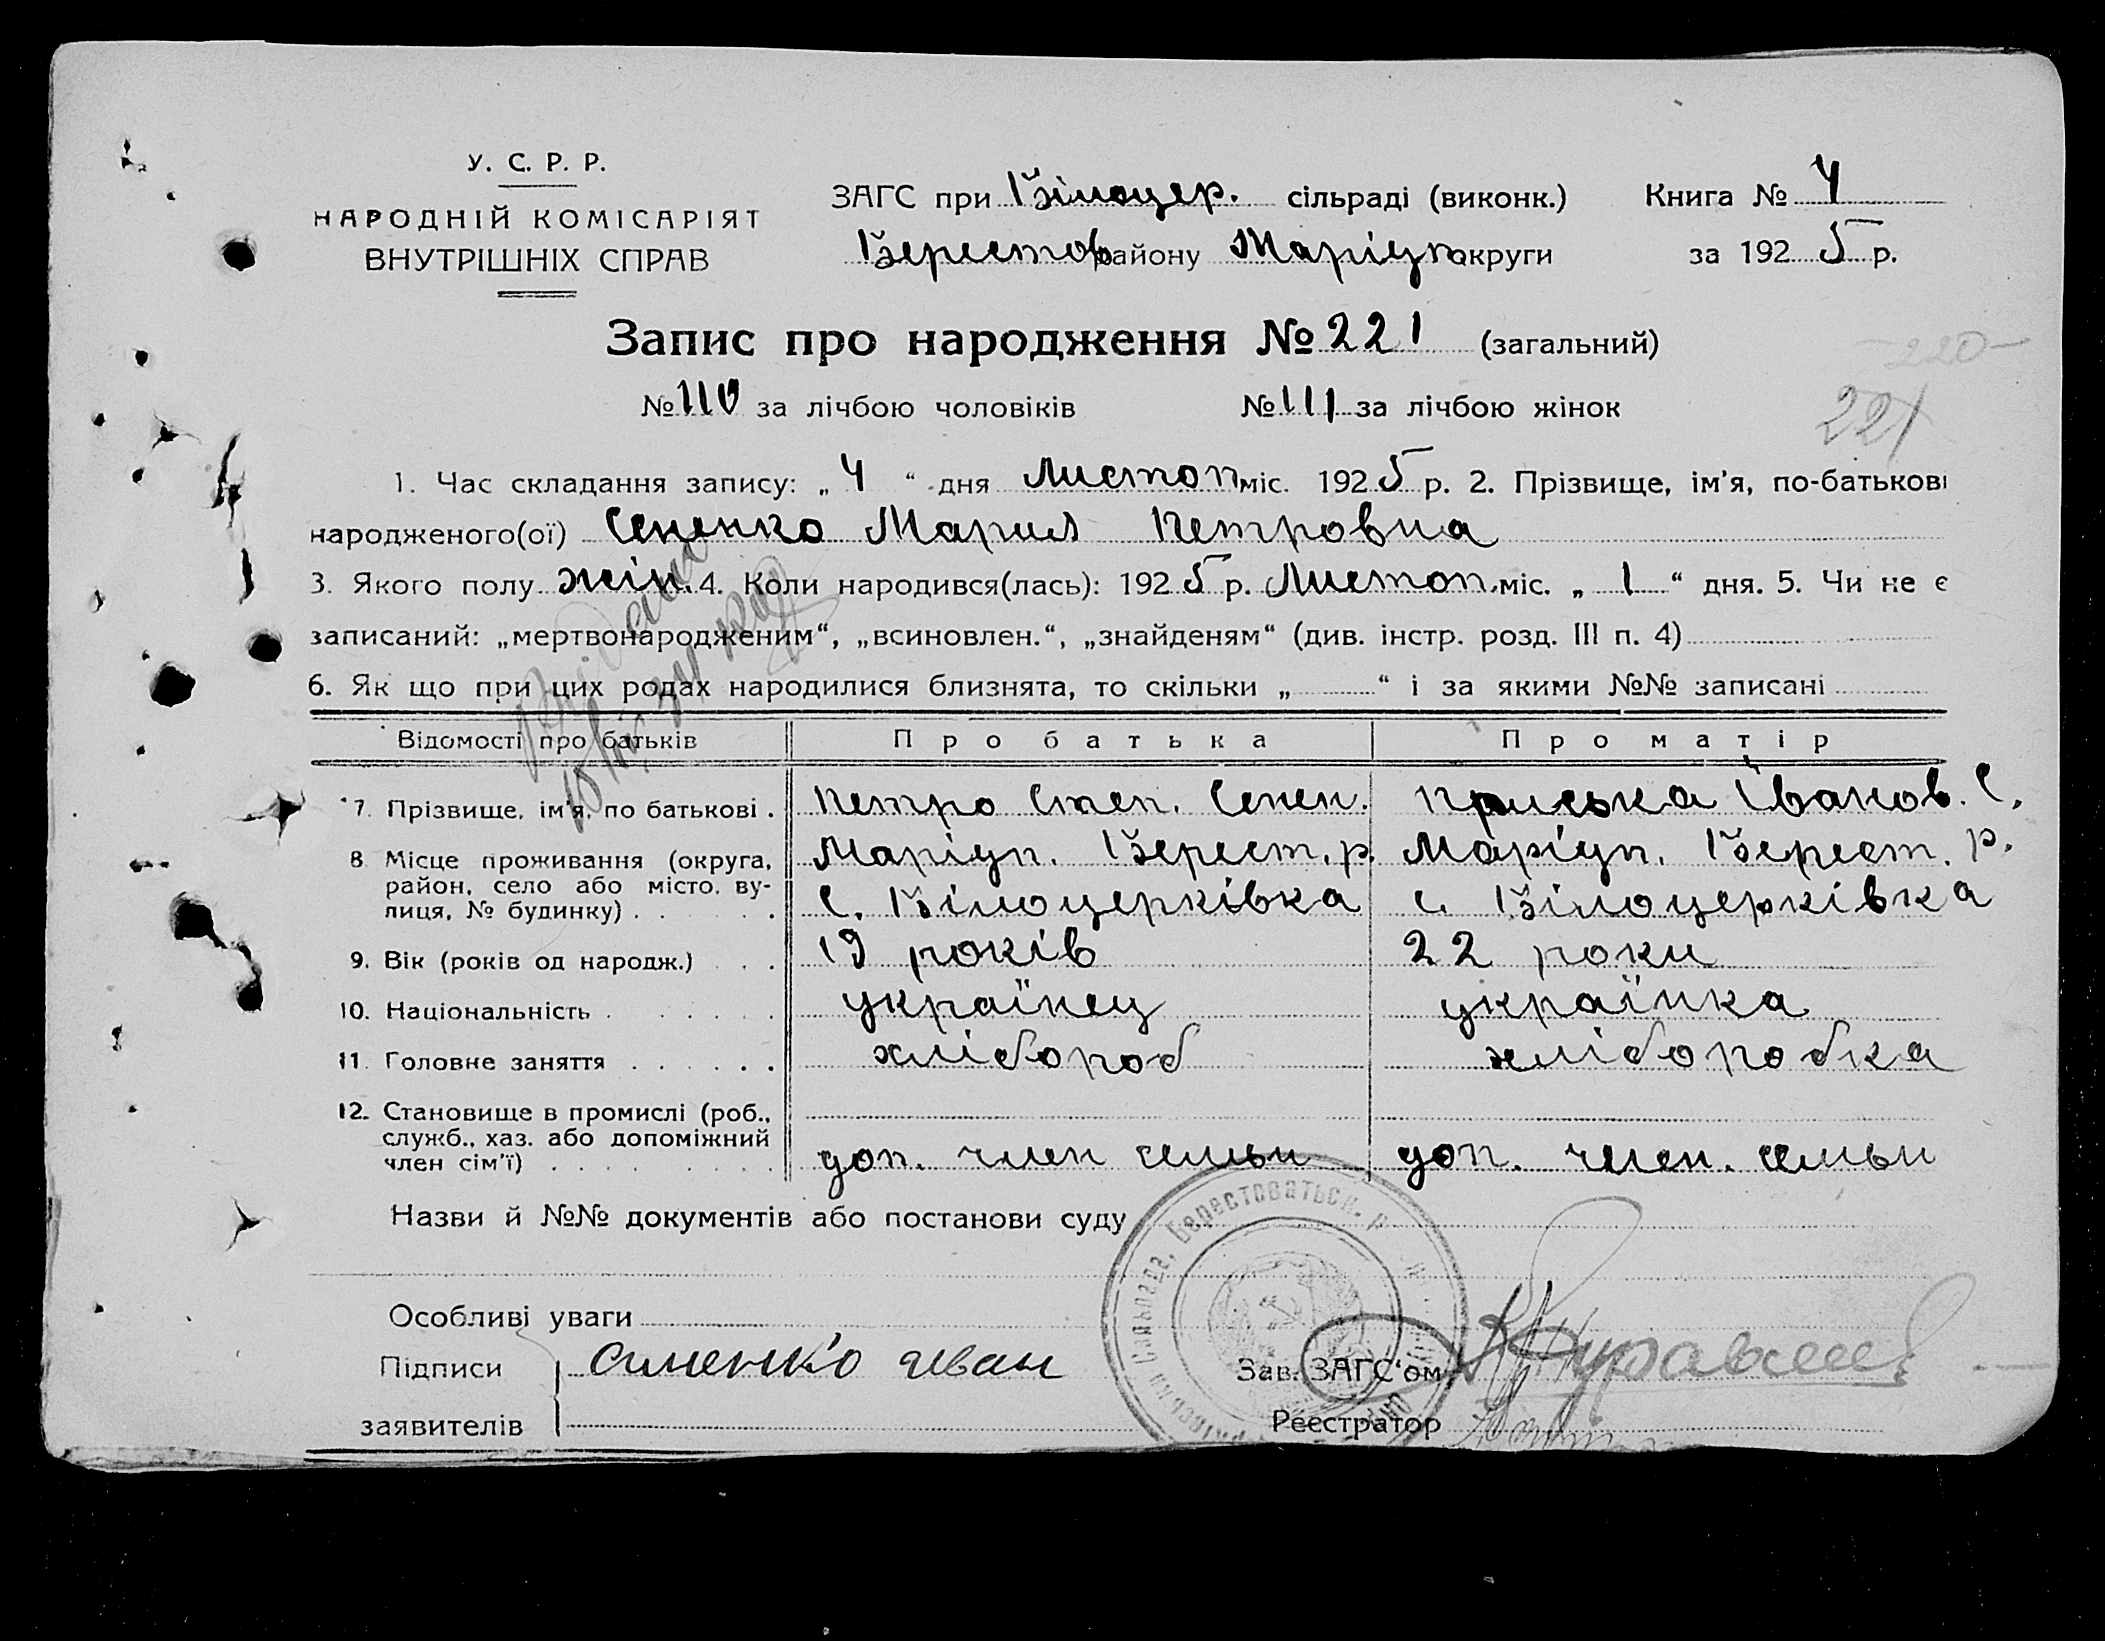 У. С. Р. Р.
НАРОДНІЙ КОМІСАРІЯТ
ВНУТРІШНІХ СПРАВ
ЗАГС при Білоцер. сільраді (виконк.) Книга № 4
Берестов району Маріуп округи за 1925 р.
Запис про народження № 221 (загальний)
220
№ 110 за лічбою чоловіків № 111 за лічбою жінок
221
1. Час складання запису: „ 4 “ дня Листоп міс. 1925 р. 2. Прізвище, ім’я, по-батькові
народженого(ої) Сененко Мария Петровна
3. Якого полу жін. 4. Коли народився(лась): 1925 р. Листоп. міс. „ 1 “ дня. 5. Чи не є
записаний: „мертвонародженим“, „всиновлен.“, „знайденям“ (див. інстр. розд. III п. 4)
6. Як що при цих родах народилися близнята, то скільки „ “ і за якими №№ записані
Відомості про батьків Про батька Про матір
7. Прізвище, ім’я, по батькові . Петро Степ. Сенен. Приська Іванов. С.
8 Місце проживання (округа, Маріуп. Берест. р. Маріуп. Берест. р.
район, село або місто, ву-
лиця, № будинку) . . . . . с. Білоцерківка с. Білоцерківка
9. Вік (років од народж.) . . . 19 років 22 роки
10. Національність . . . . . . українец українка
11. Головне заняття . . . . . . хлібороб хліборобка
12. Становище в промислі (роб.,
служб., хаз. або допоміжний
член сім’ї) . . . . . . . . доп. член семьи доп. член. семьи
Назви й №№ документів або постанови суду
Берестоватьск. р
Особливі уваги
Підписи Сененко Иван Зав. ЗАГС‘ом Журавлев
заявителів Реєстратор